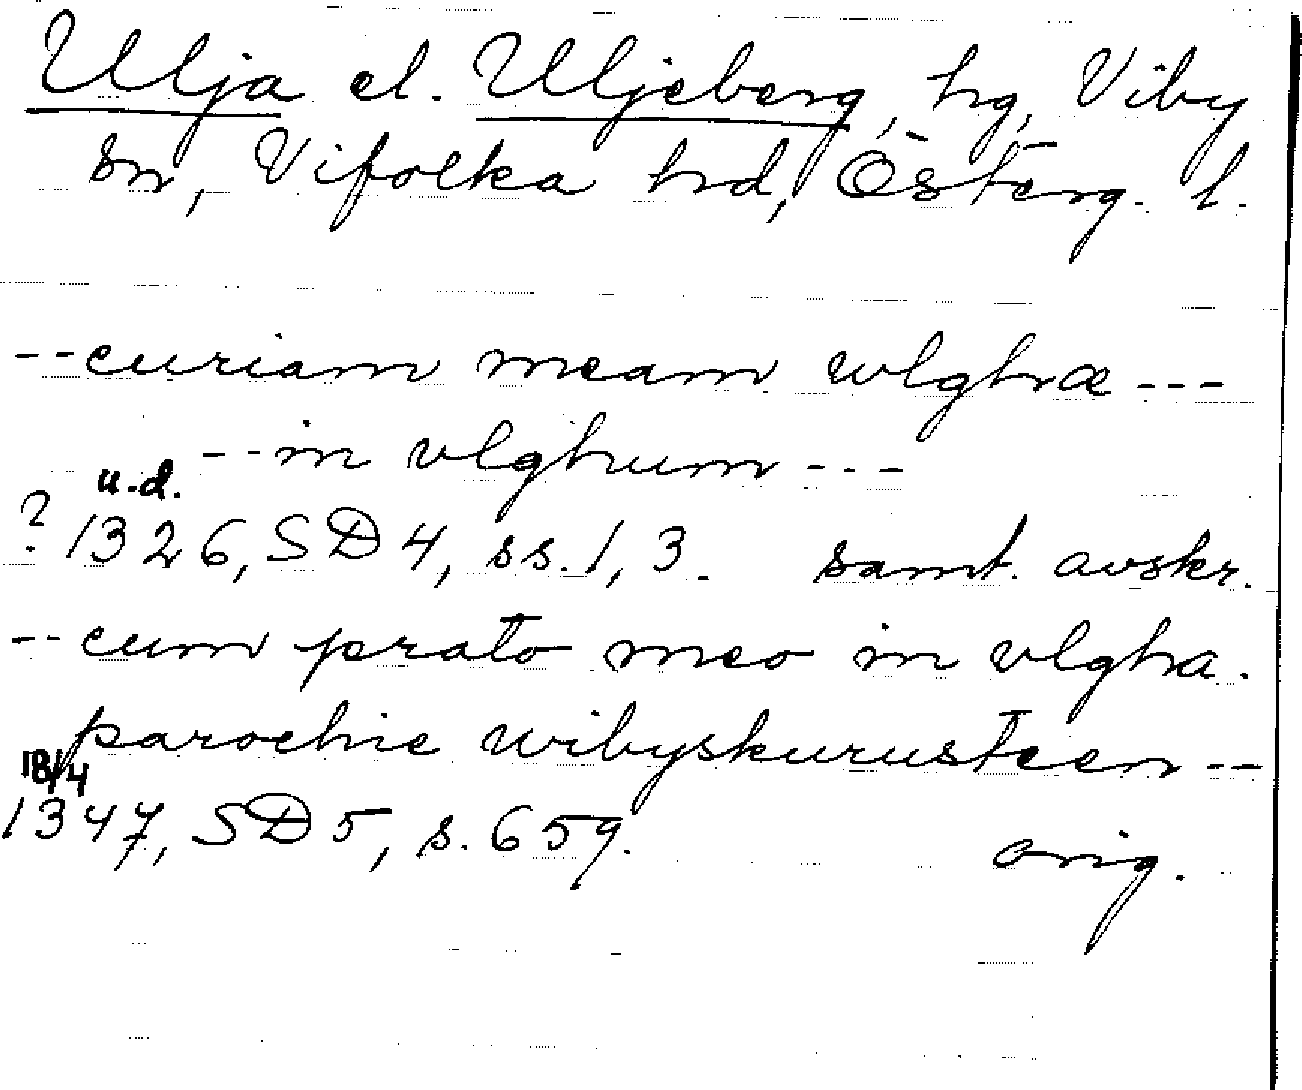 Ulja el. Uljeberg, hg, Viby
sn, Vifolka hd, Österg. l.
--curiam meam wlghræ---
--in vlghum---
u.d.
? 1326, SD4, ss. 1, 3. samt. avskr.
--cum prato meo in vlghra.
parochie wibyskurusteen--
18/4
1347, SD5, s. 659. orig.